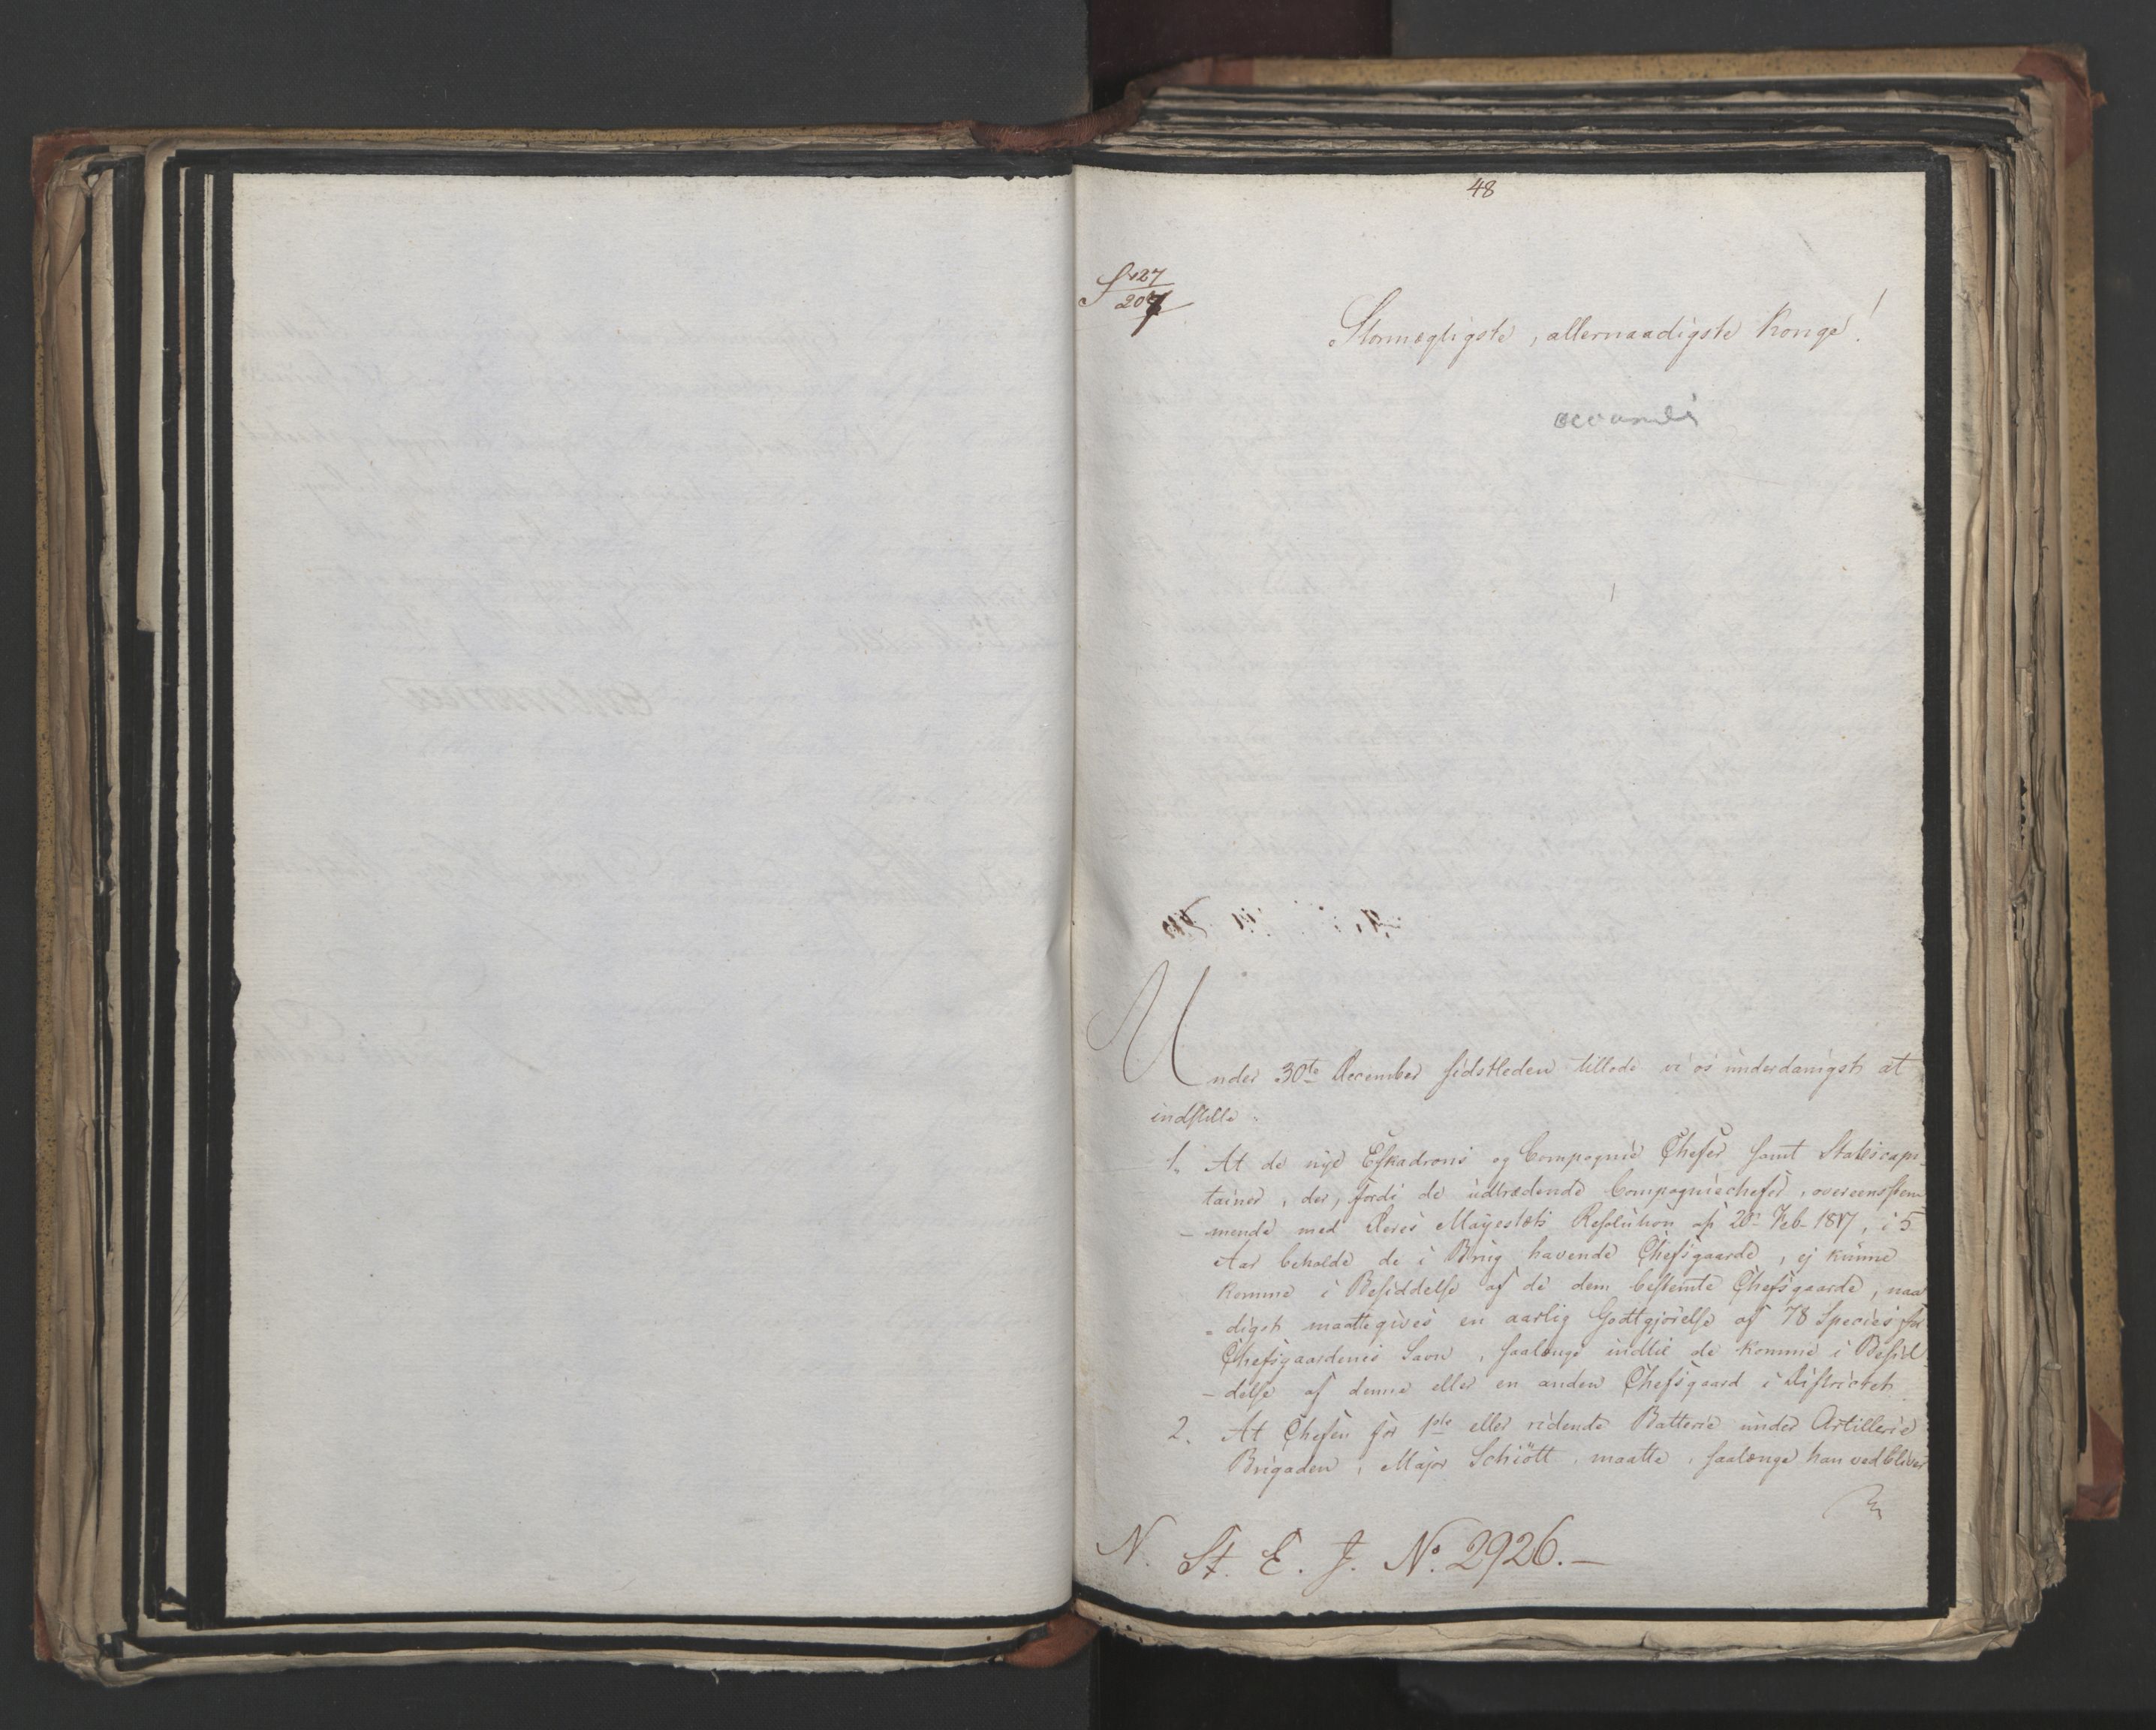 48
Stormegtigste, allernaadigste Konge!
Under 30te December sidstleden tillode vi os underdanigst at
indstille:
1. At de nye Eskadrons og Compagnie Chefer samt Statscapi-
tainer, der, fordi de udtrædende Compagniechefer, overeensstem
- mende med Deres Majestæts Resolution af 20de Feb. 1817, i 5
Aar beholde de i Brug havende Chefsgaarde, ej kunne
komme i Besiddelse af de dem bestemte Chefsgaarde, naa
- digst maatte gives en aarlig Godtgjörelse af 78 Species for
Chefsgaardenes Savn, saalænge indtil de komme i Besid-
- delse af denne eller en anden Chefsgaard i Districtet.
2. At Chefen for 1ste eller ridende Batterie under Artillerie
Brigaden, Major Schiött, maatte, saalænge han vedbliver
N. St. E. J. No. 2926.-